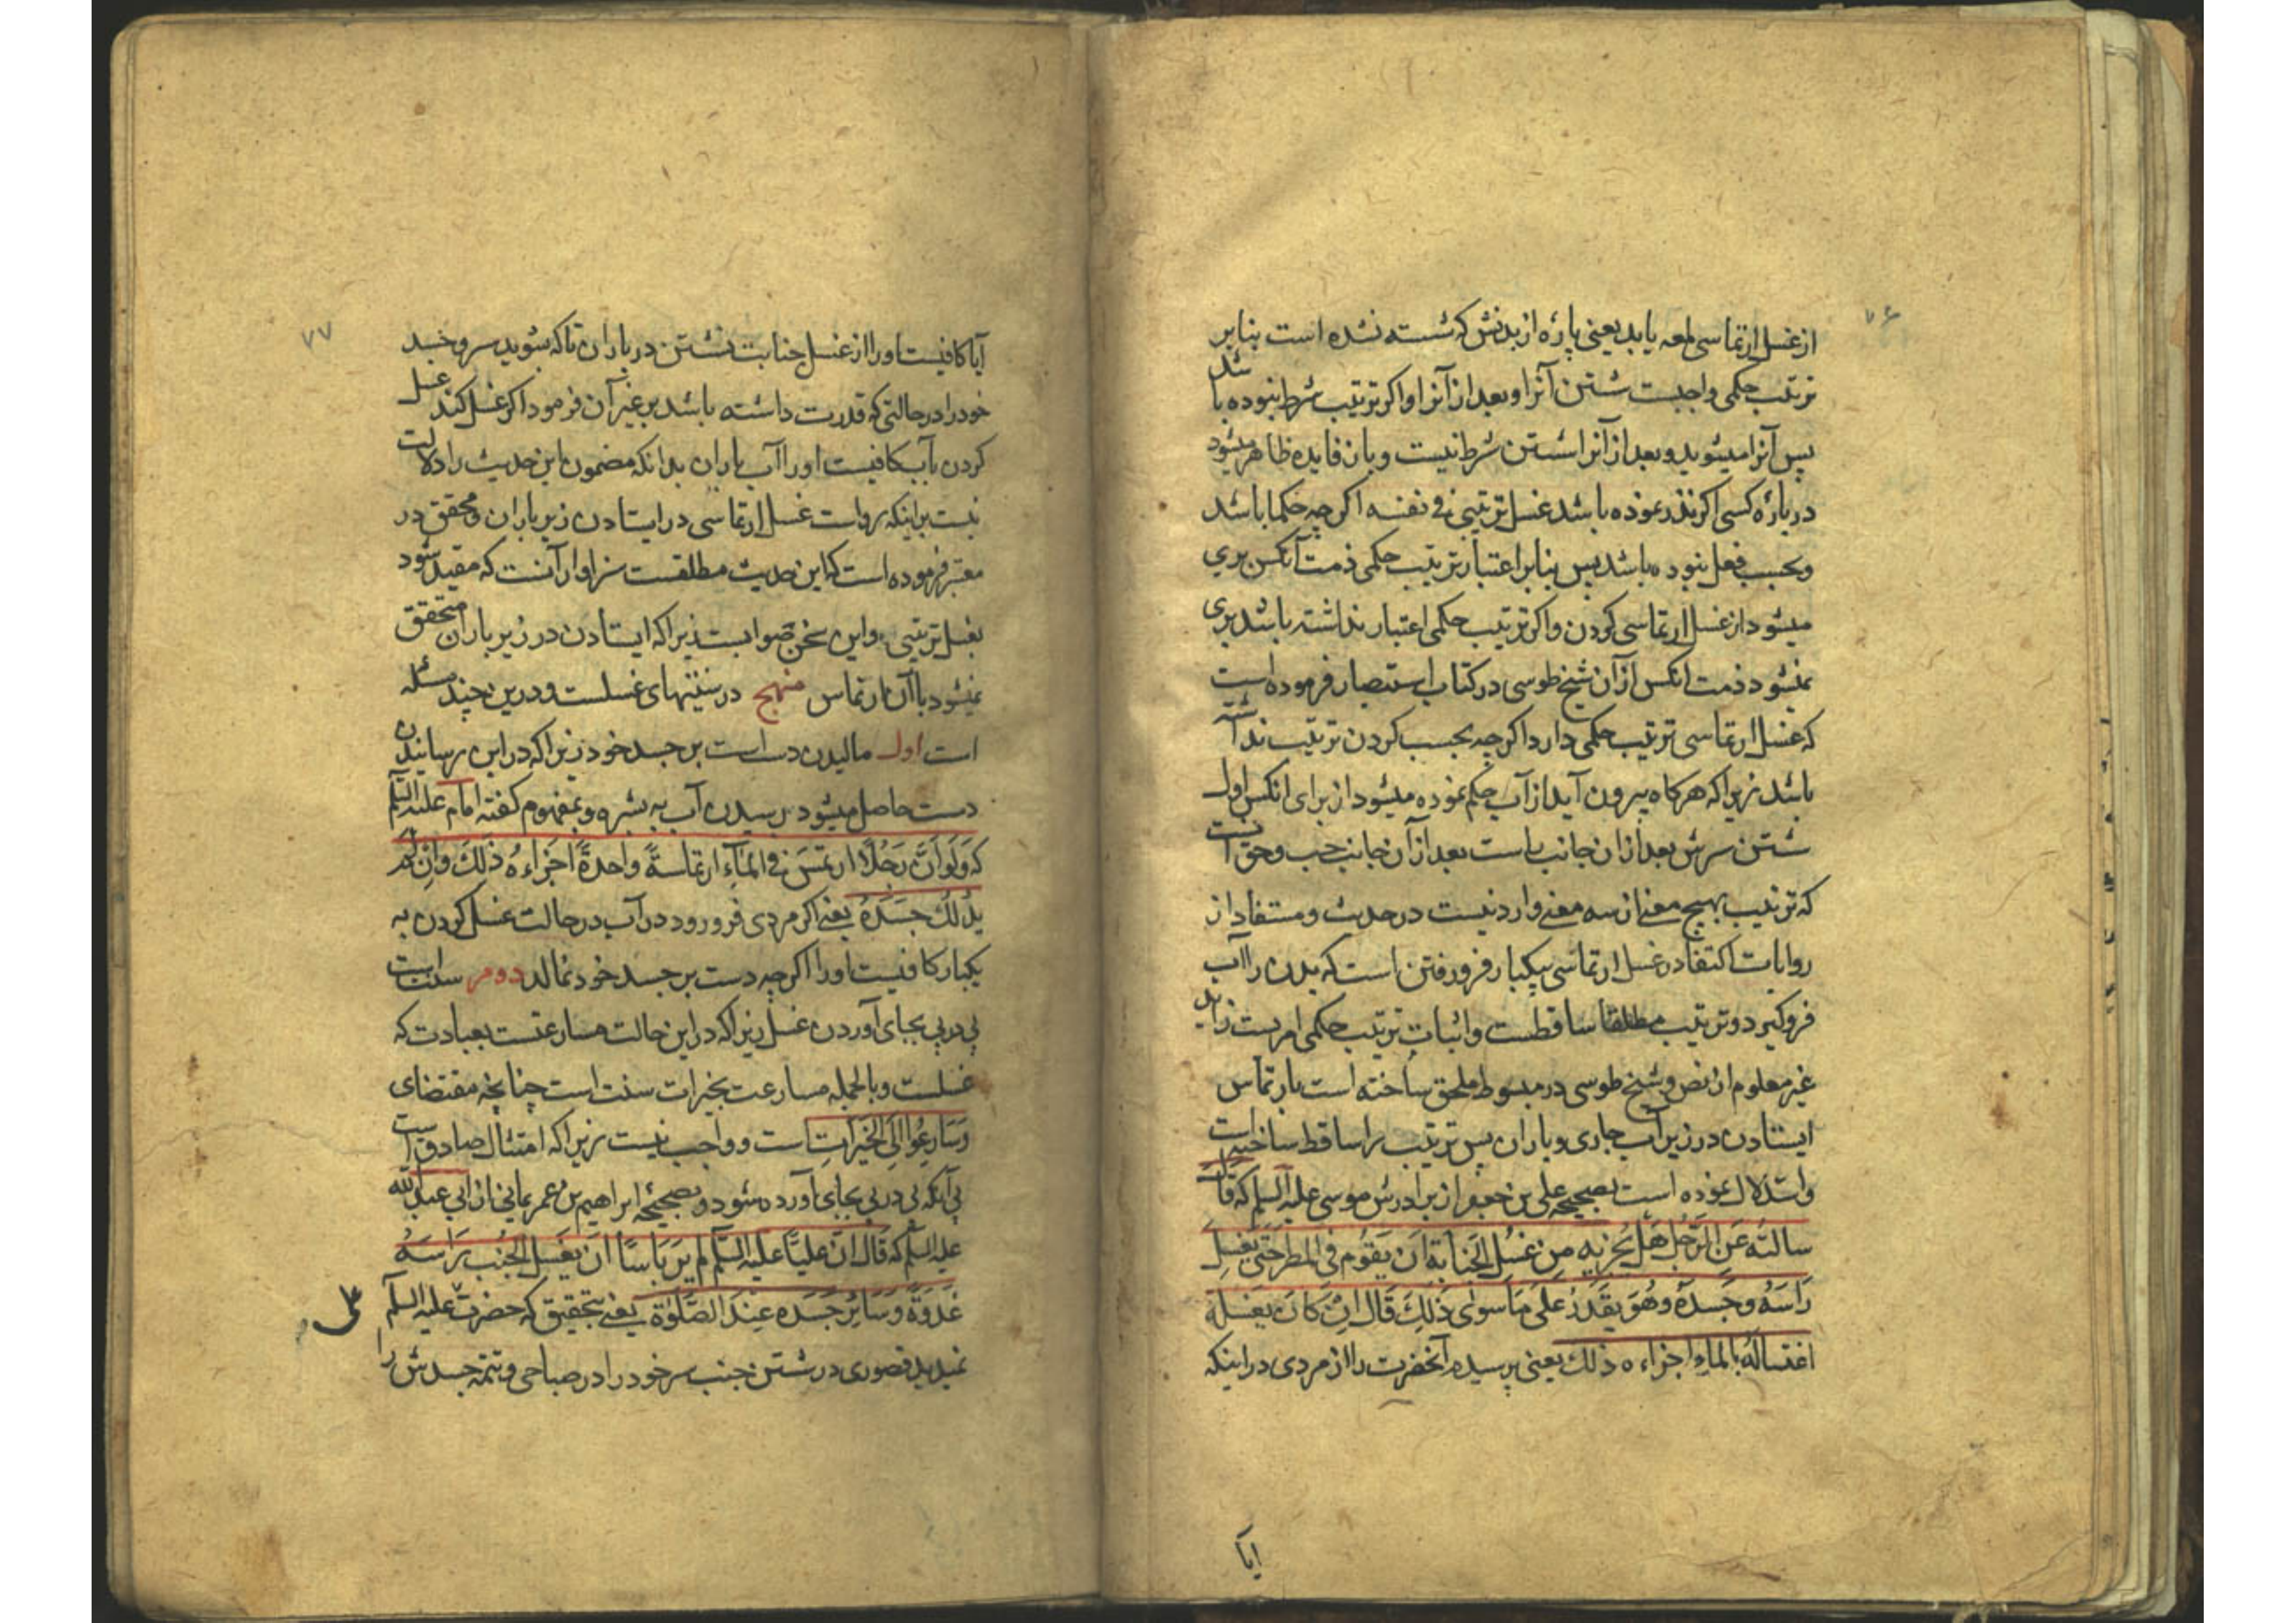 ۷۶
از غسل ارتماسی لمعه یابد یعنی پارهٔ از بدنش که شسته نشده است بنابر
ترتیب حکمی واجبست شستن آنرا و بعد از آنرا و اگر ترتیب شرط نبوده باشد
پس آنرا میشوید و بعد از آنرا شستن شرط نیست و بان فایده ظاهر میشود
در بارهٔ کسی اگر نذر نموده باشد غسل ترتیبی فی نفسه اگرچه حکما باشد
و بحسب فعل نبوده باشد پس بنابر اعتبار ترتیب حکمی ذمت آنکس بری
میشود از غسل ارتماسی کردن و اگر ترتیب حکمی اعتبار نداشته باشد بری
نمیشود ذمت انکس از آن شیخ طوسی در کتاب استبصار فرموده است
که غسل ارتماسی ترتیب حکمی دارد اگرچه بحسب کردن ترتیب نداشته
باشد زیرا که هرکاه بیرون آید از آب حکم نموده میشود از برای انکس اول
شستن سرش بعد از ان جانب راست بعد از آن جانب چپ و حق آنست
که ترتیب بهیچ معنی از سه معنی وارد نیست در حدیث و مستفاد از
روایات اکتفا در غسل ارتماسی بیکبار فرو رفتن است که بدن را آب
فرو کیرد و ترتیب مطلقا ساقطست و اثبات ترتیب حکمی امریست زاید
غیر معلوم از نص و شیخ طوسی در مبسوط ملحق ساخته است بارتماس
ایستادن در زیر آب جاری و باران پس ترتیب را ساقط ساخته است
و استدلال نموده است بصحیحهٔ علی بن جعفر از برادرش موسی علیه السلم که قال
سالته عن الرجل هل یجزیه من غسل الجنابة ان یقوم فی المطر حتی یغسل
راسه و جسده و هو یقدر علی ما سوای ذلک قال ان کان یغسله
اغتساله بالماء اجزاءه ذلک یعنی پرسیدم آنحضرت را از مردی در اینکه
ایا
۷۷
آیا کافیست او را از غسل جنابت نشستن در باران تا که بشوید سر و جسد
خود را در حالتی که قدرت داشته باشد بر غیر آن فرمود اگر غسل کند غسل
کردن بآب کافیست او را آب باران بدانکه مضمون این حدیث را دلالت
نیست بر اینکه رواست غسل ارتماسی در ایستادن زیر باران و محقق در
معتبر فرموده است که این حدیث مطلقست سزاوار آنست که مقید شود
بغسل ترتیبی و این سخن صوابست زیرا که ایستادن در زیر باران متحقق
نمیشود با آن ارتماس منهج در سنتیهای غسلست و درین چند مسئله
است اول مالیدن دست است بر جسد خود زیرا که در این رسانیدن
دست حاصل میشود رسیدن آب به بشره و بمفهوم کفته امام علیه السلم
که وَلَو اَنَّ رَجُلًا ارتَمَسَ فی المآءِ ارتماسةً واحدةً اَجزاءهُ ذلکَ وَاِن لَم
یَدلُک جَسَدَهُ یعنی اگر مردی فرو رود در آب در حالت غسل کردن به
یکبار کافیست او را اگرچه دست بر جسد خود نمالد دوم سنت است
پی در پی بجای آوردن غسل زیرا که در این حالت مسارعتست بعبادت که
غسلست و بالجمله مسارعت بخیرات سنت است چنانچه مقتضای
وَسَارِعُوا اِلَی الخَیراتِ است و واجب نیست زیرا که امتثال صادق است
بی آنکه پی در پی بجای آورده شود و بصحیحهٔ ابراهیم بن عمر یمانی از ابی عبد الله
علیه السلم که قالَ اِنَّ عَلیًّا علیه السّلم لم یَرَ بَاسًا اَن یَغسِلَ الجُنُب رَاسَهُ
غدوةً وَ سَائِرَ جَسَدِهِ عِندَ الصَّلوٰة یعنی بتحقیق که حضرت علی علیه السلم
نمیدید قصوری در شستن جنب سر خود را در صباحی و تتمهٔ جسدش را